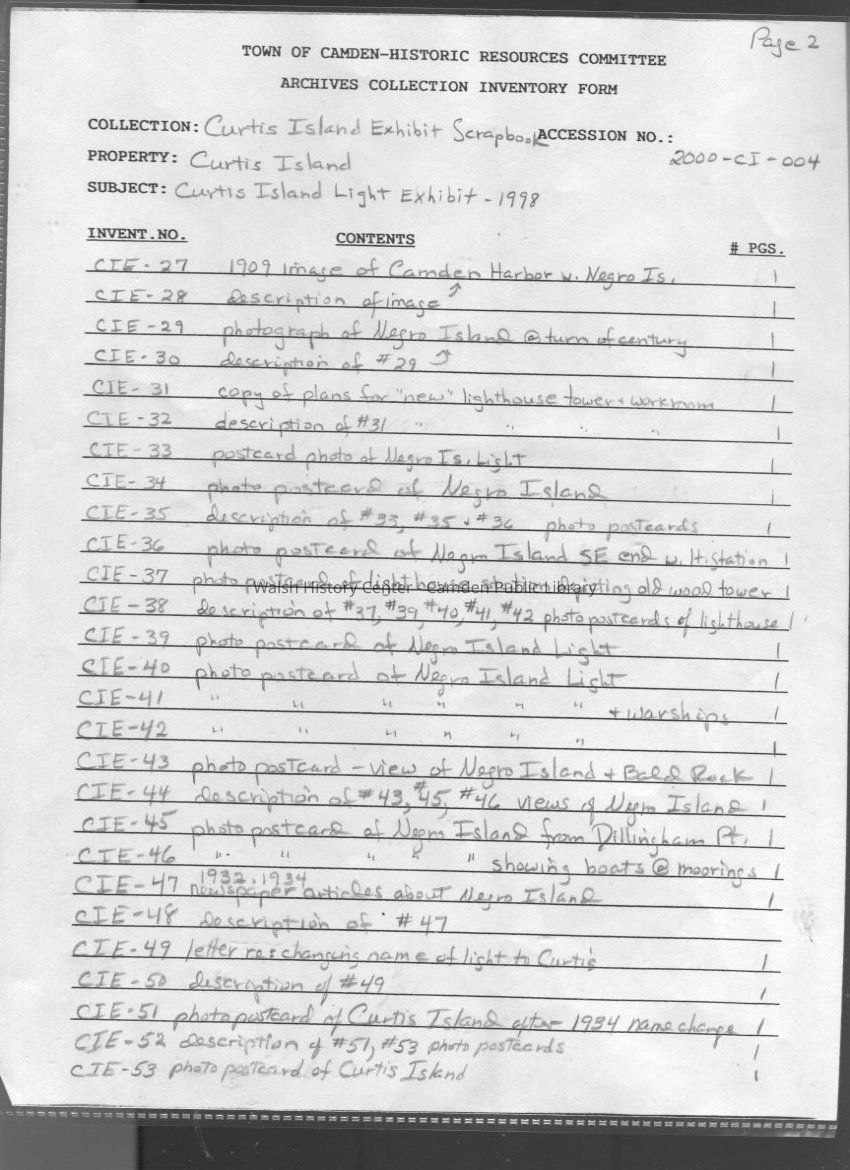 Page 2
TOWN OF CAMDEN-HISTORIC RESOURCES COMMITTEE
ARCHIVES COLLECTION INVENTORY FORM
COLLECTION: Curtis Island Exhibit Scrapbook ACCESSION NO.:
PROPERTY: Curtis Island 2000-CI-004
SUBJECT: Curtis Island Light Exhibit - 1998
INVENT.NO. CONTENTS # PGS.
CIE-27 1909 image of Camden Harbor w. Negro Is. 1
CIE-28 description of image 1
CIE-29 photograph of Negro Island @ turn of century 1
CIE-30 description of #29 1
CIE-31 copy of plans for "new" lighthouse tower + workroom 1
CIE-32 description of #31 " " " " 1
CIE-33 postcard photo of Negro Is. Light 1
CIE-34 photo postcard of Negro Island 1
CIE-35 description of #33, #35 + #36 photo postcards 1
CIE-36 photo postcard of Negro Island SE end w. lt. station 1
CIE-37 photo postcard of lighthouse station depicting old wood tower 1
Walsh History Center - Camden Public Library
CIE-38 description of #37, #39, #40, #41, #42 photo postcards of lighthouse 1
CIE-39 photo postcard of Negro Island Light 1
CIE-40 photo postcard of Negro Island Light 1
CIE-41 " " " " " " + warships 1
CIE-42 " " " " " " 1
CIE-43 photo postcard - view of Negro Island + Bald Rock 1
CIE-44 description of #43, #45, #46 views of Negro Island 1
CIE-45 photo postcard of Negro Island from Dillingham Pt. 1
CIE-46 " " " " " showing boats @ moorings 1
CIE-47 1932, 1934 newspaper articles about Negro Island 1
CIE-48 description of #47
CIE-49 letter re: changing name of light to Curtis 1
CIE-50 description of #49 1
CIE-51 photo postcard of Curtis Island after 1934 name change 1
CIE-52 description of #51, #53 photo postcards 1
CIE-53 photo postcard of Curtis Island 1